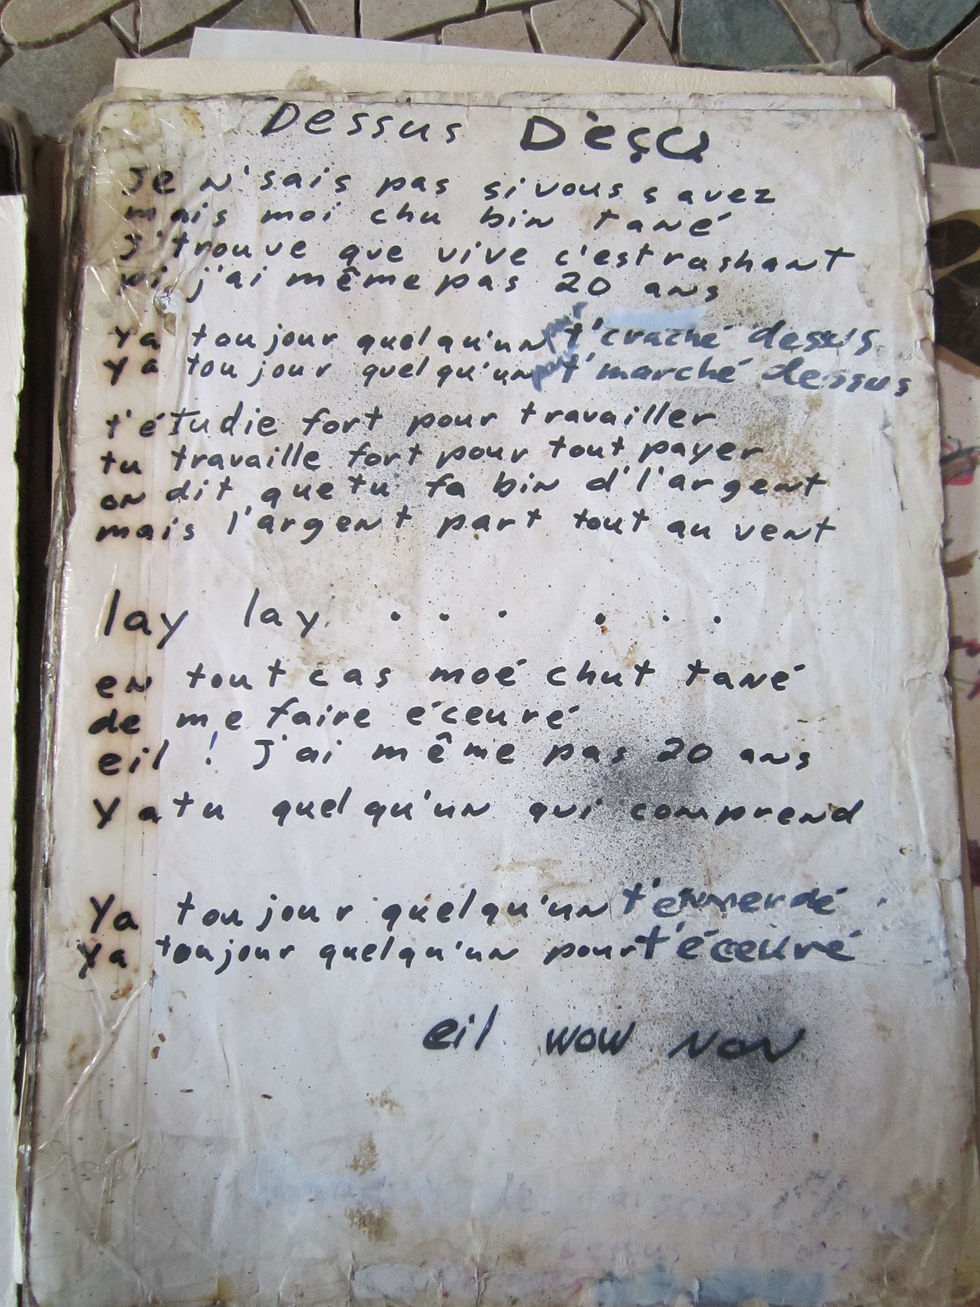 Dessus Déçu
Je n'sais pas si vous savez
mais moi chu bin tané
j'trouve que vive c'est rashant
pi j'ai même pas 20 ans
Ya toujour quelqu'un pour t'craché dessus
Ya toujour quelqu'un pour t'marché dessus
t'étudie fort pour travailler
tu travaille fort pour tout payer
on dit que tu fa bin d'l'argent
mais l'argent part tout au vent
lay lay . . . . . .
en tout cas moé chut tané
de me faire éceuré
eil ! J'ai même pas 20 ans
Y a tu quelqu'un qui comprend
Ya toujour quelqu'un t'emmerdé
ya toujour quelqu'un pour t'éceuré
eil wow non